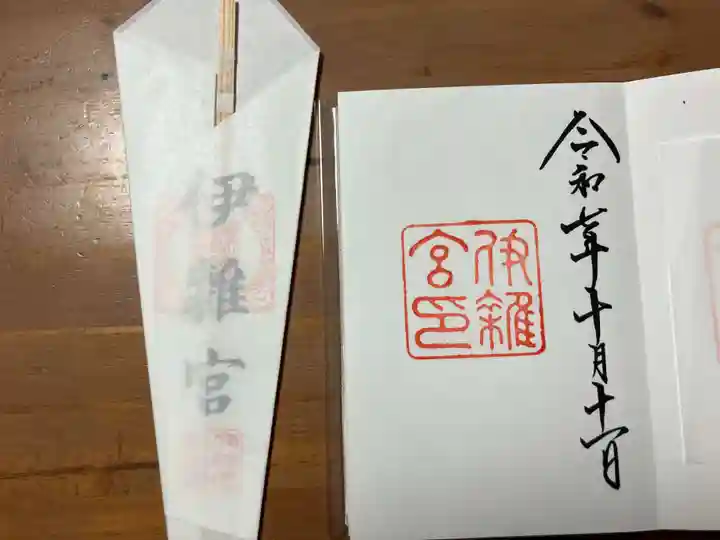 伊雜宮
伊雜
宮印
令和七年十月十一日